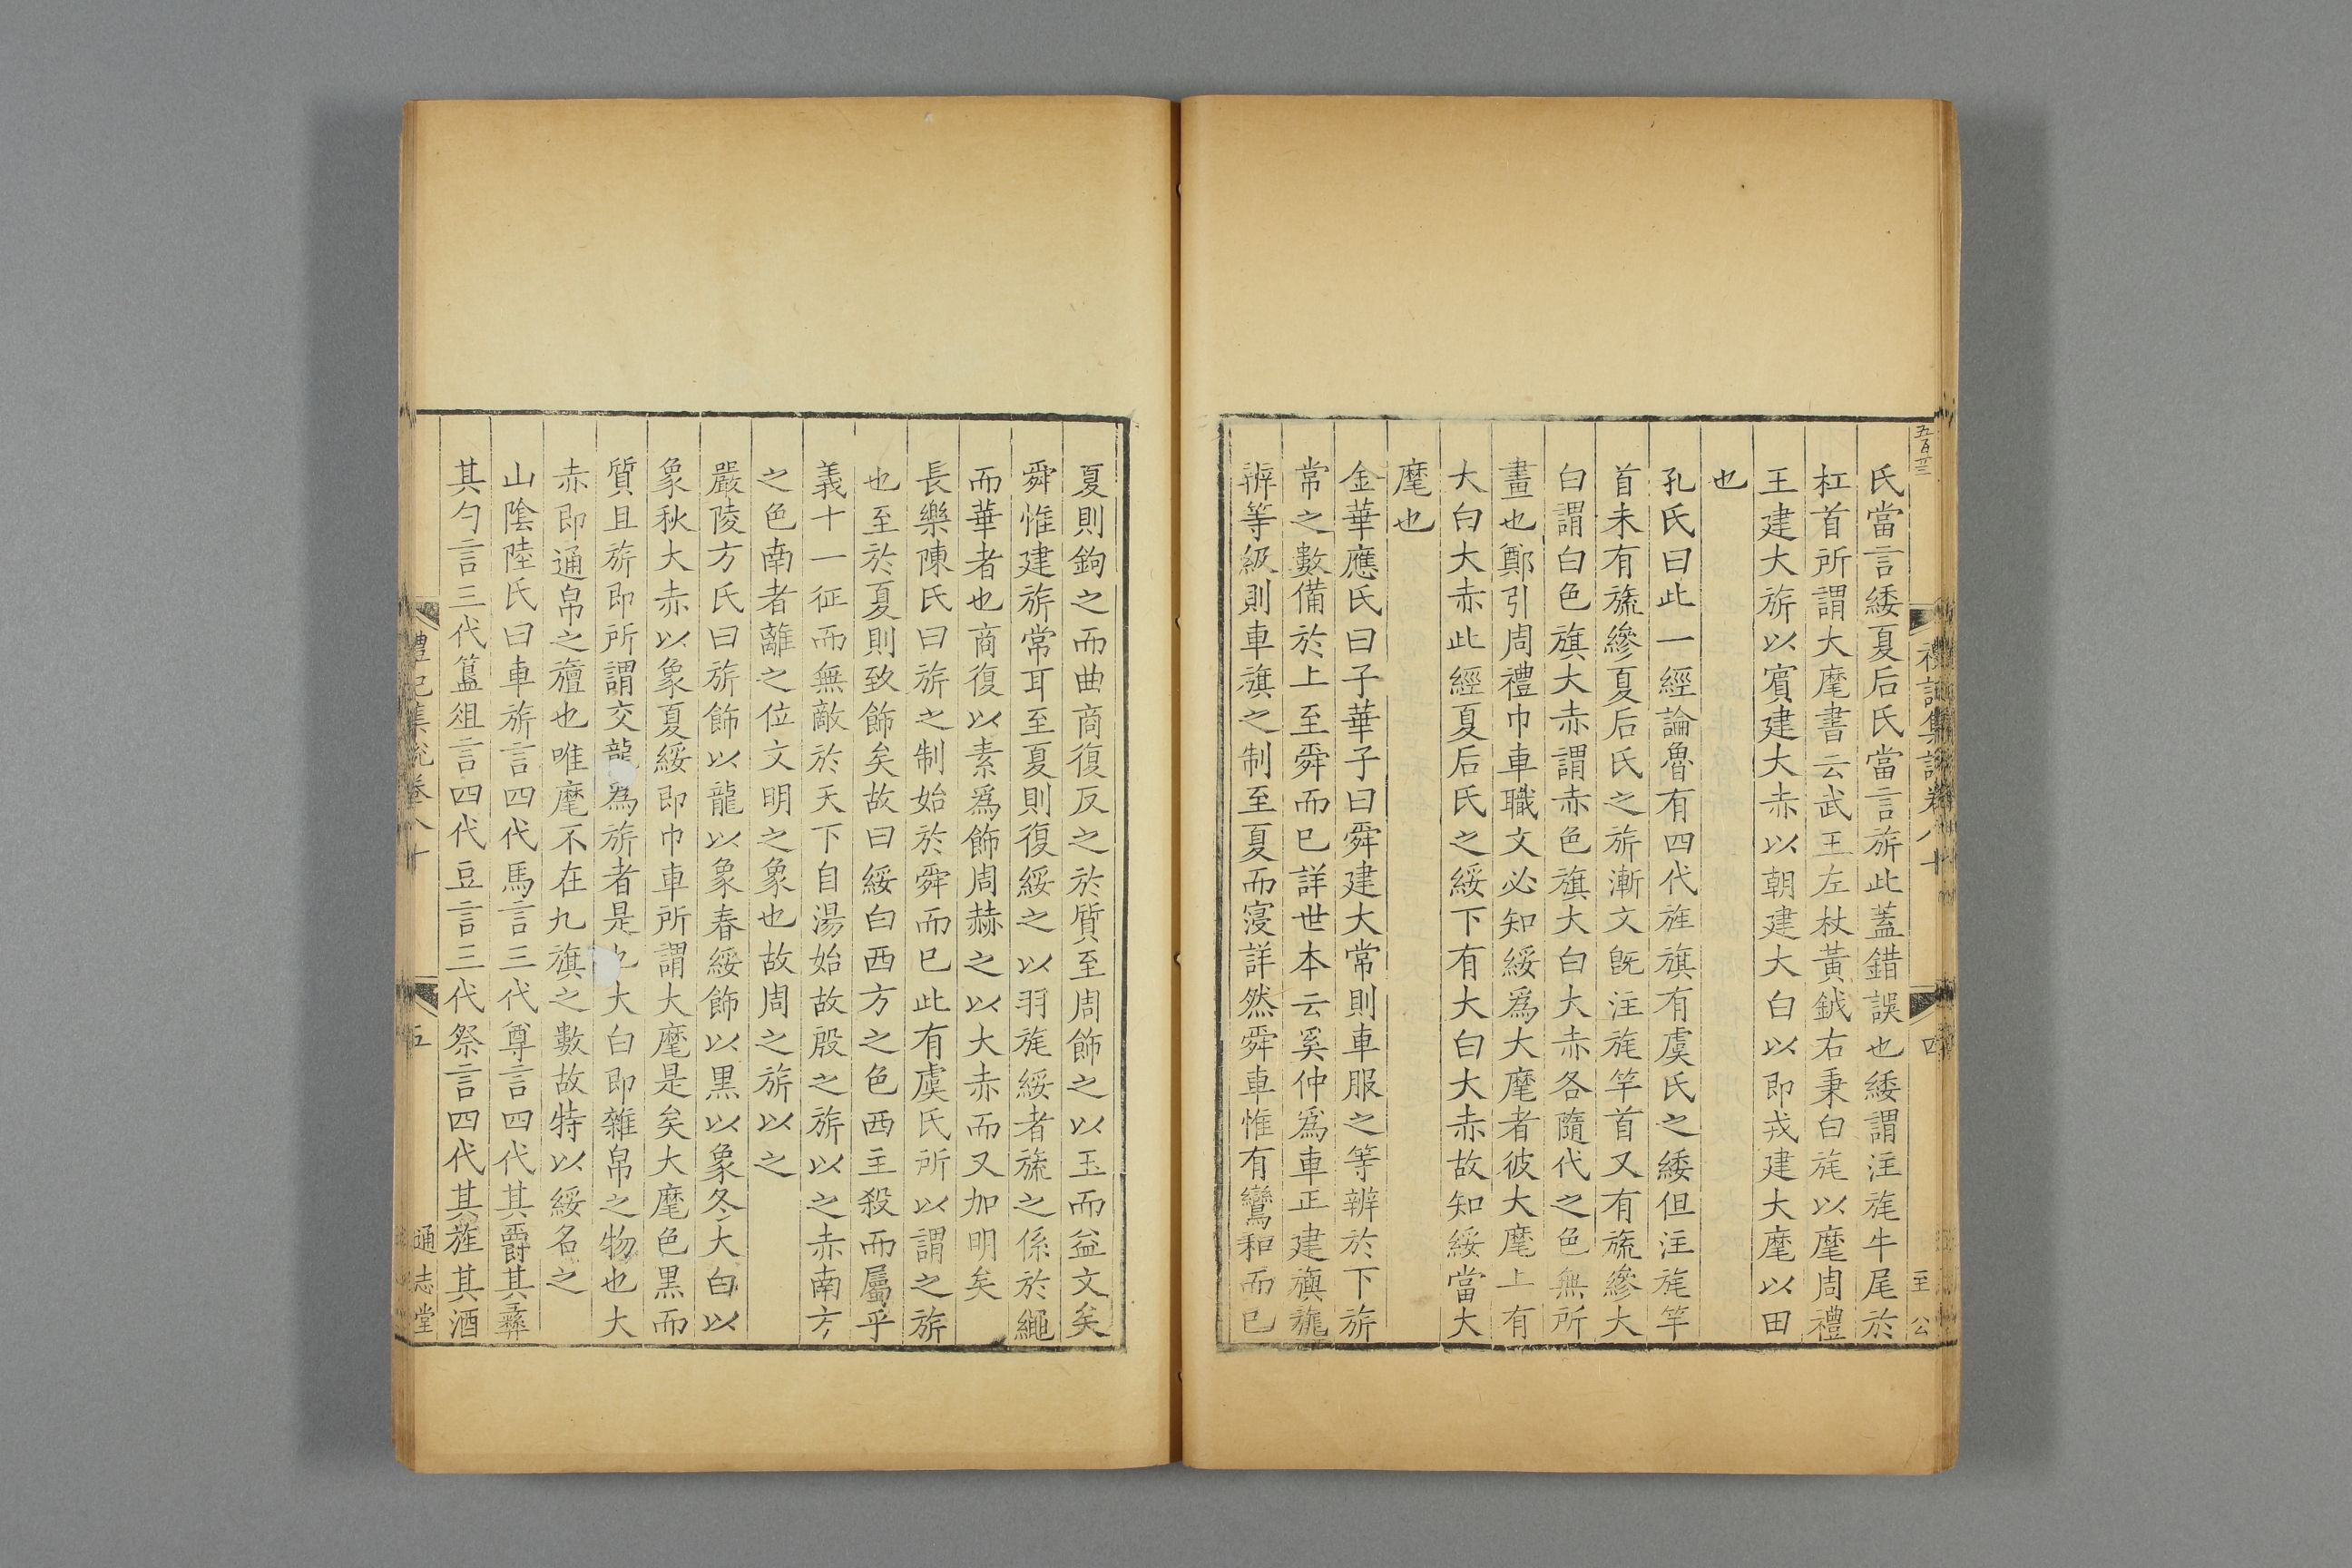 五百廿三
禮記集說卷八十
四
至
公
氏當言緌夏后氏當言旂此蓋錯誤也緌謂注旄牛尾於
杠首所謂大麾書云武王左杖黃鉞右秉白旄以麾周禮
王建大旂以賓建大赤以朝建大白以即戎建大麾以田
也
孔氏曰此一經論魯有四代旌旗有虞氏之緌但注旄竿
首未有旒縿夏后氏之旂漸文旣注旄竿首又有旒縿大
白謂白色旗大赤謂赤色旗大白大赤各隨代之色無所
畫也鄭引周禮巾車職文必知綏爲大麾者彼大麾上有
大白大赤此經夏后氏之綏下有大白大赤故知綏當大
麾也
金華應氏曰子華子曰舜建大常則車服之等辨於下旂
常之數備於上至舜而已詳世本云奚仲爲車正建旟旐
辨等級則車旗之制至夏而寖詳然舜車惟有鸞和而已
夏則鉤之而曲商復反之於質至周飾之以玉而益文矣
舜惟建旂常耳至夏則復綏之以羽旄綏者旒之係於繩
而華者也商復以素爲飾周赫之以大赤而又加明矣
長樂陳氏曰旂之制始於舜而已此有虞氏所以謂之旂
也至於夏則致飾矣故曰綏白西方之色西主殺而屬乎
義十一征而無敵於天下自湯始故殷之旂以之赤南方
之色南者離之位文明之象也故周之旂以之
嚴陵方氏曰旂飾以龍以象春綏飾以黑以象冬大白以
象秋大赤以象夏綏即巾車所謂大麾是矣大麾色黑而
質且旂即所謂交龍為旂者是也大白即雜帛之物也大
赤即通帛之旜也唯麾不在九旗之數故特以綏名之
山陰陸氏曰車旂言四代馬言三代尊言四代其爵其彝
其勺言三代簋俎言四代豆言三代祭言四代其旌其酒
禮記集說卷八十
五
通志堂